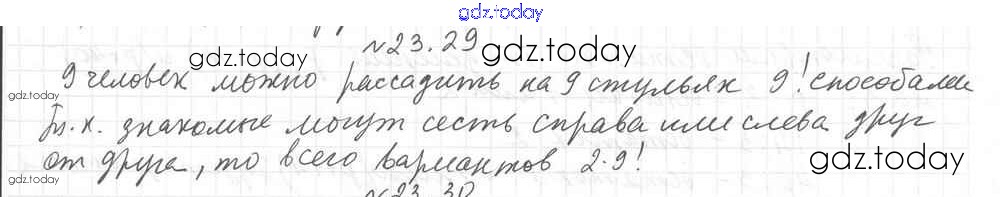 gdz.today
№23.29
gdz.today
gdz.today
9 человек можно рассадить на 9 стульях 9! способами
gdz.today
Т.к. знакомые могут сесть справа или слева друг
от друга, то всего вариантов 2·9!
gdz.today
gdz.today
№23.30